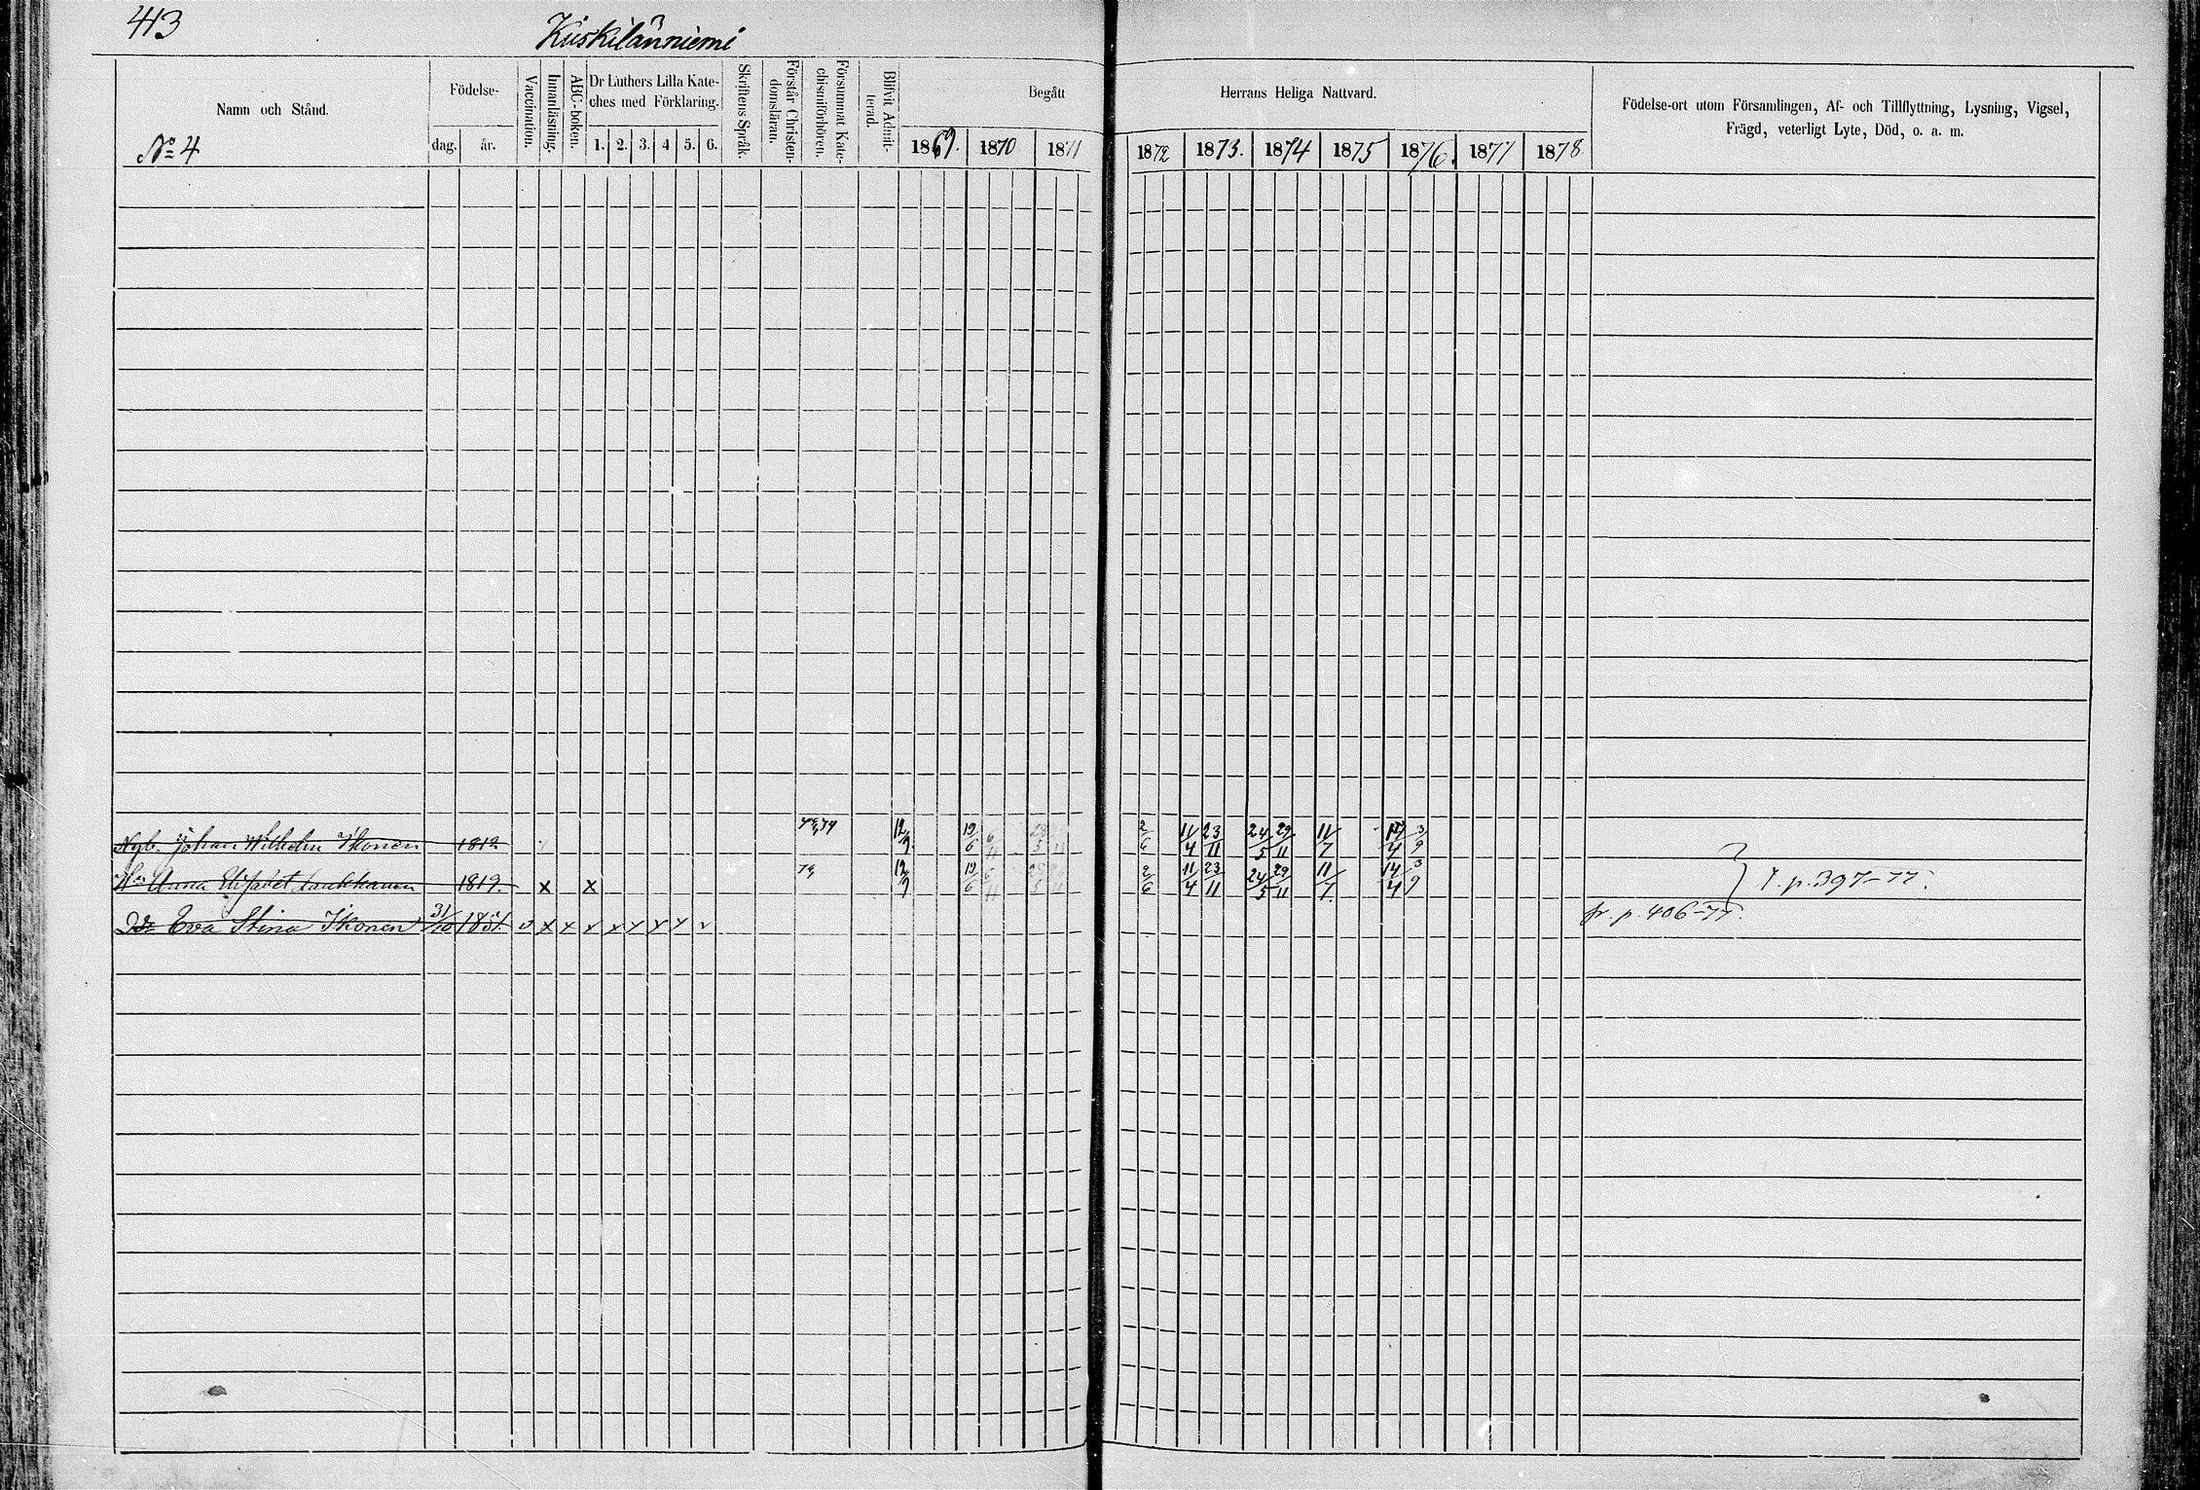 413
Kiiskilänniemi
Namn och Stånd.
Födelse-
dag. år.
Vaccination.
Innanläsning.
ABC-boken.
Dr Luthers Lilla Kate-
ches med Förklaring.
1. 2. 3. 4 5. 6.
Skriftens Språk.
Förstår Christen-
domsläran.
Försummat Kate-
chismiförhören.
Blifvit Admit-
terad.
Begått
1869. 1870 1871
Herrans Heliga Nattvard.
1872 1873. 1874 1875 1876. 1877 1878
Födelse-ort utom Församlingen, Af- och Tillflyttning, Lysning, Vigsel,
Frägd, veterligt Lyte, Död, o. a. m.
No 4
Johan Wilhelm Ikonen 1812 12/9 19/6 6/11 2/6 11/4 23/11 24/5 29/11 11/7 3/9
Anna Elisabet 1819. x x 12/9 19/6 6/11 2/6 11/4 23/11 24/5 29/11 11/7 14/4 3/9
p. 397-77.
Dr Eva Stina Ikonen 31/10 1851. v x x x x x x x v
fr. p. 406-77.